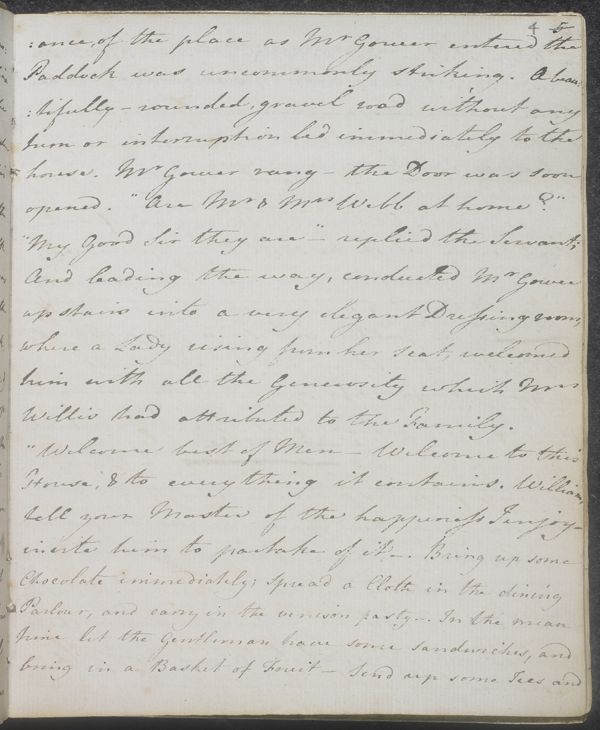 4 5
:ance, of the place as Mr Gower entered the
Paddock was uncommonly striking. A beau:
:tifully-rounded, gravel road without any
turn or interruption led immediately to the
house. Mr Gower rang - the Door was soon
opened. "Are Mr & Mrs Webb at home?"
"My Good Sir they are" - replied the Servant;
And leading the way, conducted Mr Gower
up stairs into a very elegant Dressing room,
where a Lady rising from her seat, welcomed
him with all the Generosity which Mrs
Willis had attributed to the Family.
"Welcome best of Men - Welcome to this
House, & to everything it contains. William,
tell your Master of the happiness I enjoy -
invite him to partake of it -. Bring up some
Chocolate immediately; Spread a Cloth in the dining
Parlour, and carry in the venison pasty -. In the mean
time let the Gentleman have some sandwiches, and
bring in a Basket of Fruit - Send up some Ices and